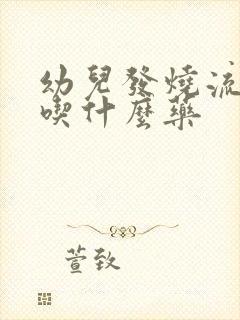 幼兒發燒流
喫什麼藥
萱致